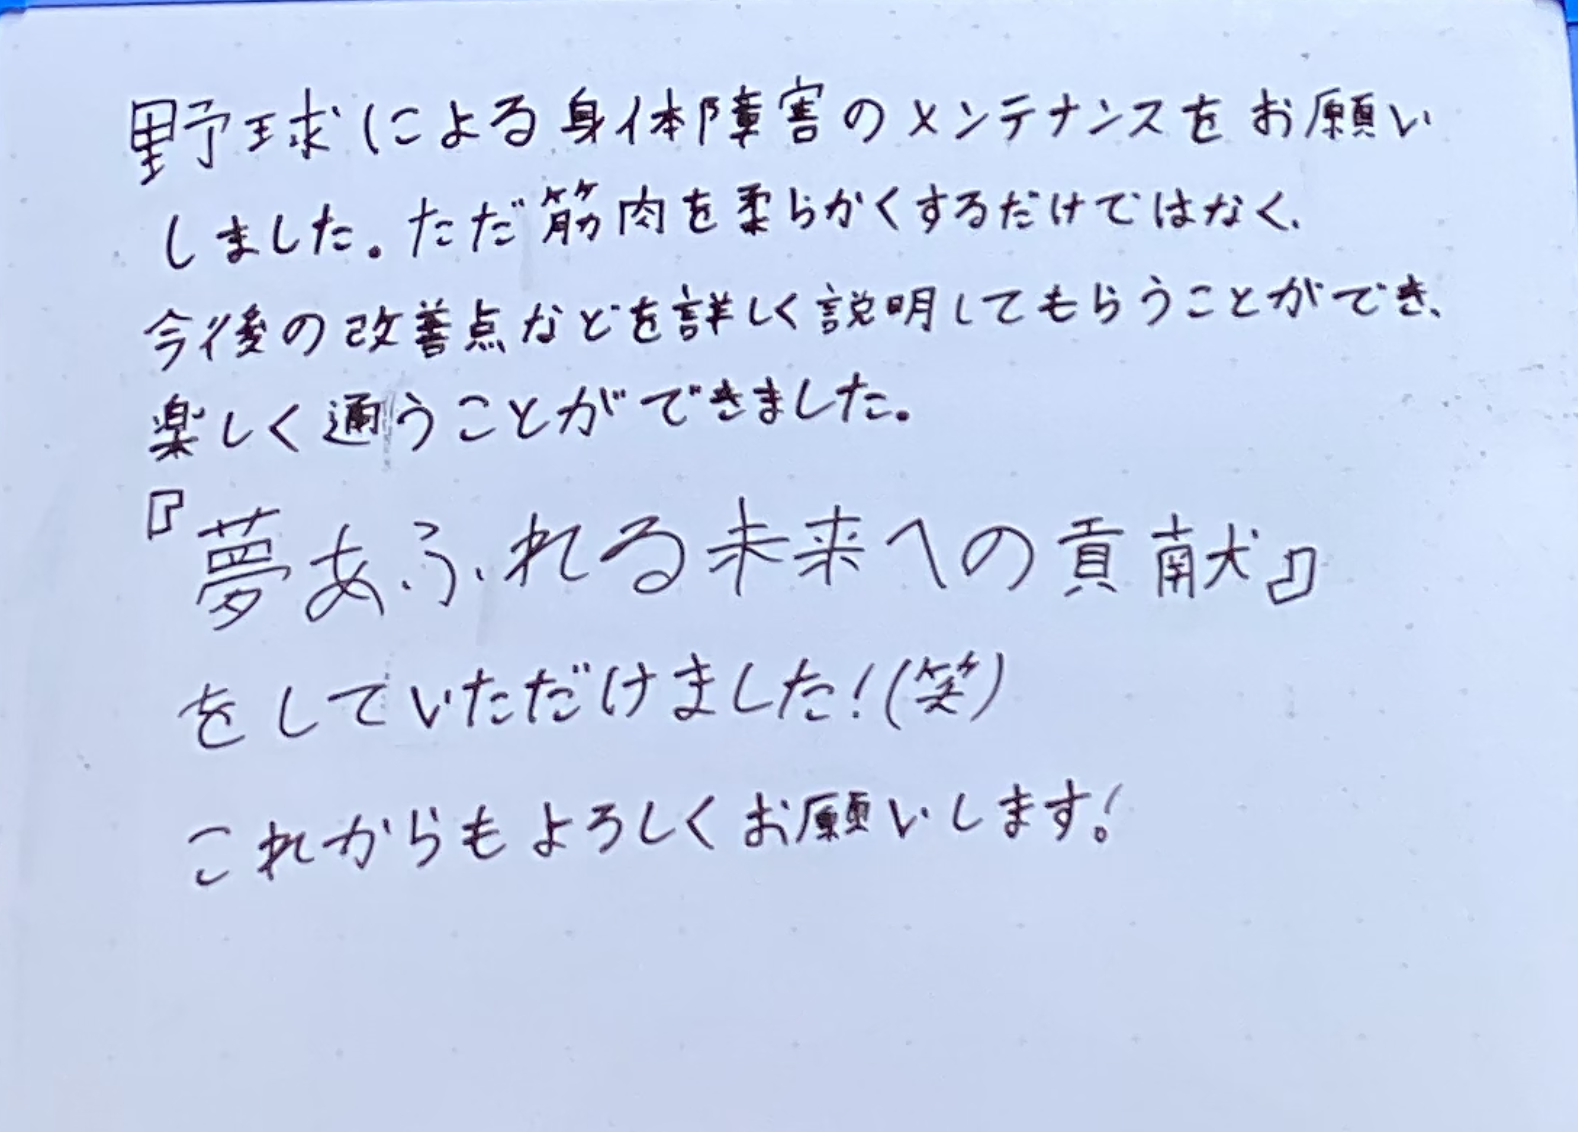 野球による身体障害のメンテナンスをお願い
しました。ただ筋肉を柔らかくするだけではなく、
今後の改善点などを詳しく説明してもらうことができ、
楽しく通うことができました。
『夢あふれる未来への貢献』
をしていただけました!(笑)
これからもよろしくお願いします!